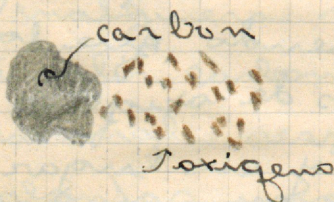 carbon
oxigeno